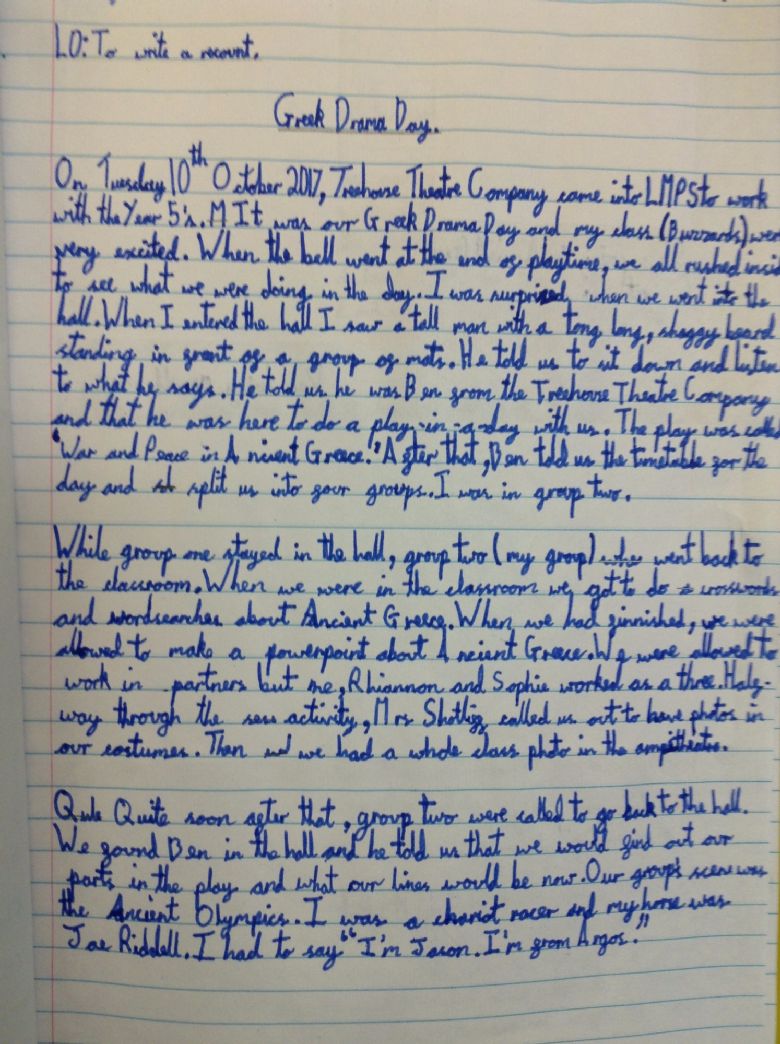 LO: To write a recount.
Greek Drama Day.
On Tuesday 10th October 2017, Treehouse Theatre Company came into LMPS to work
with the Year 5's. M It was our Greek Drama Day and my class (Buzzards) wer
very excited. When the bell went at the end of playtime, we all rushed insi
to see what we were doing in the day. I was surprised, when we went into the
hall. When I entered the hall I saw a tall man with a tong long, shaggy beard
standing in front of a group of mats. He told us to sit down and listen
to what he says. He told us he was Ben from the Treehouse Theatre Company
and that he was here to do a play-in-a-day with us. The play was called
"War and Peace in Ancient Greece." After that, Ben told us the timetable for the
day and split us into four groups. I was in group two.
While group one stayed in the hall, group two (my group) went back to
the classroom. When we were in the classroom we got to do crosswords
and wordsearches about Ancient Greece. When we had finnished, we were
allowed to make a powerpoint about Ancient Greece. We were allowed to
work in partners but me, Rhiannon and Sophie worked as a three. Half-
way through the activity, Mrs called us out to have photos in
our costumes. Then we had a whole class photo in the ampitheatre.
Quite soon after that, group two were called to go back to the hall.
We found Ben in the hall and he told us that we would find out our
parts in the play and what our lines would be now. Our group's scene was
the Ancient Olympics. I was a chariot racer and my horse was
Jae Riddell. I had to say "I'm Jason. I'm from Argos."